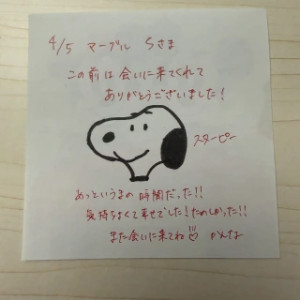 4/5 マーブル Sさま
この前は会いに来てくれて
ありがとうございました!
スヌーピー
あっというまの時間だった!!
気持ちよくて幸せでした!たのしかった!!
また会いに来てね かんな